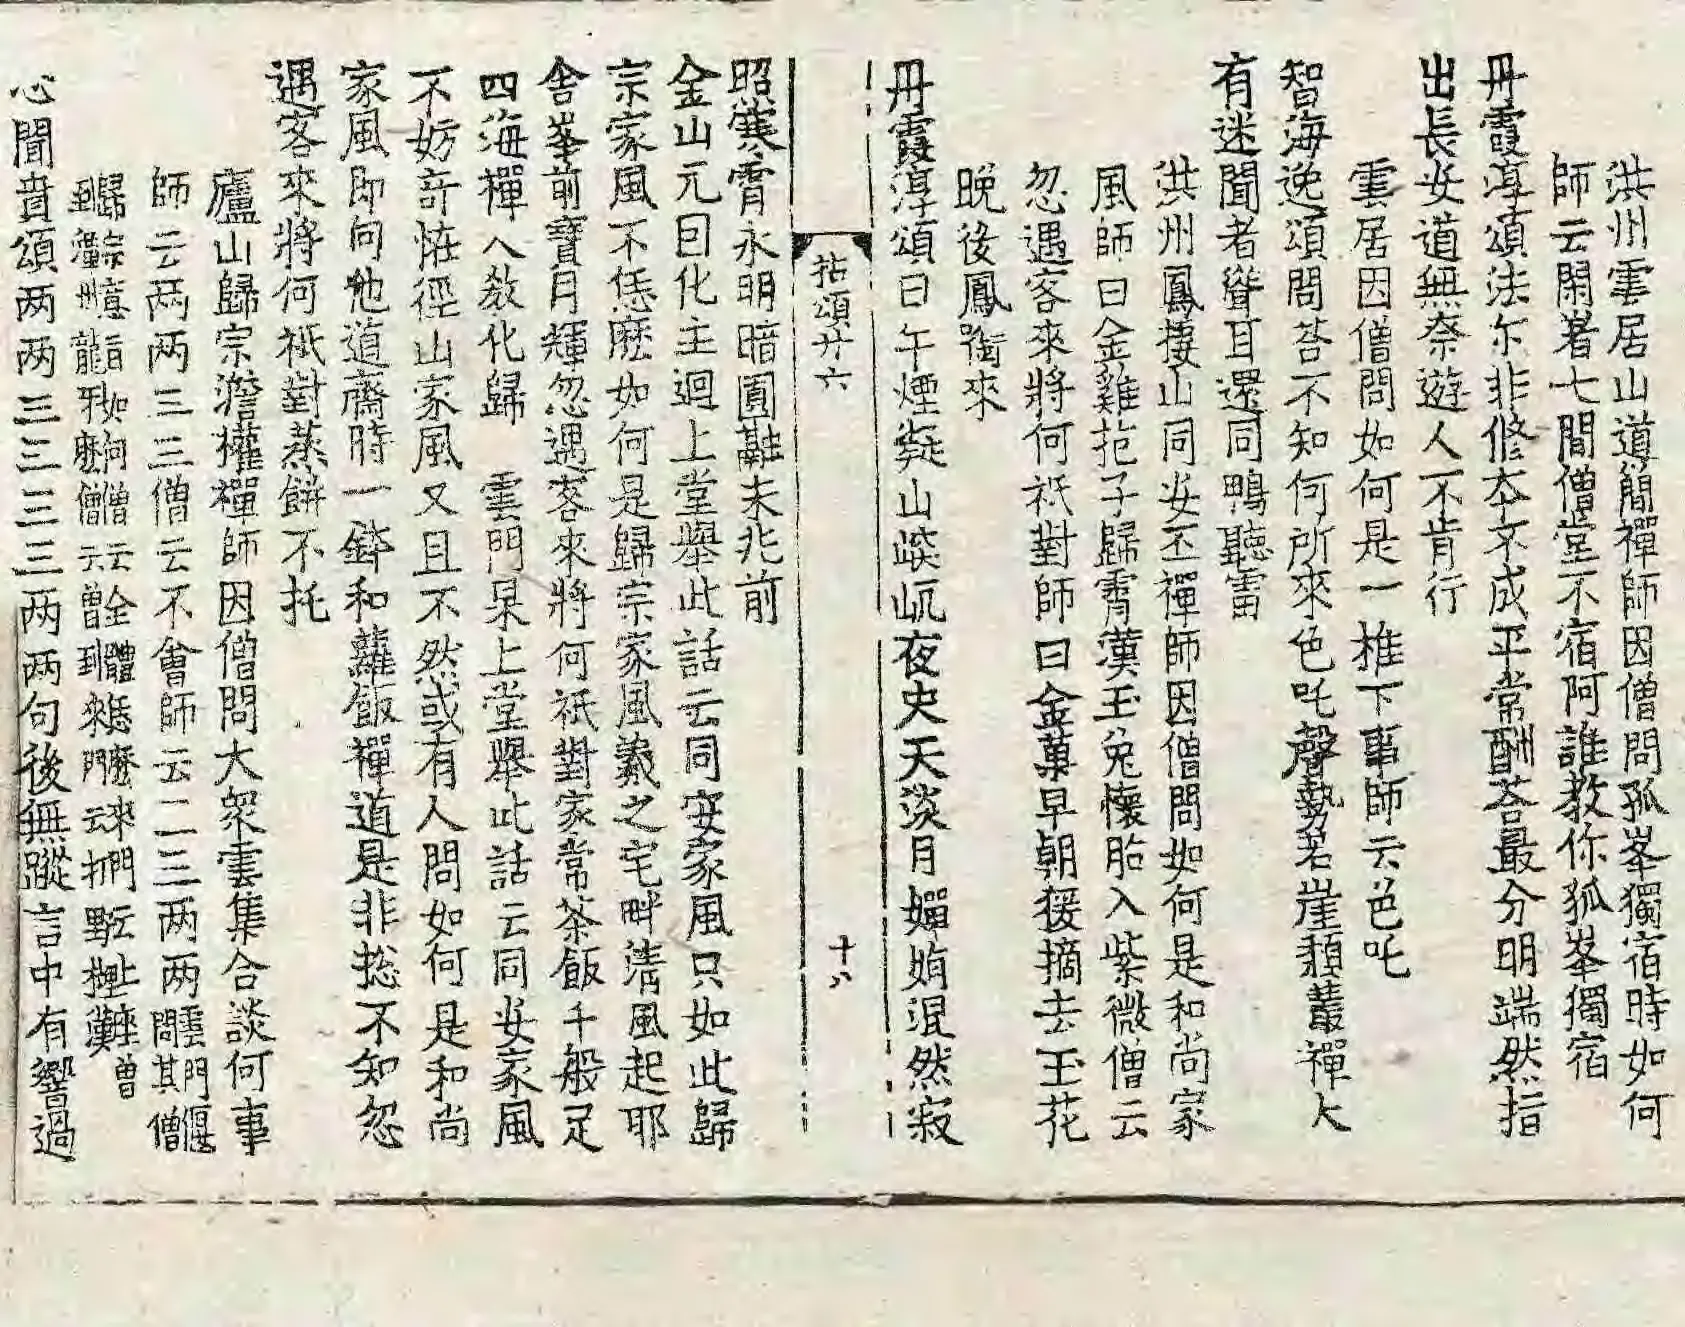 洪州雲居山道簡禪師因僧問孤峯獨宿時如何
師云閑著七間僧堂不宿阿誰教你孤峯獨宿
丹霞淳頌法尓非修夲不成平常酬荅最分明端然指
出長安道無柰遊人不肯行
雲居因僧問如何是一推下事師云邑吒
智海逸頌問荅不知何所來色吒聲勢若崖頹叢禪大
有迷聞者聳耳還同鴨聽雷
洪州鳳棲山同安丕禪師因僧問如何是和尚家
風師曰金雞抱子歸霄漢玉兔懷胎入紫微僧云
忽遇客來將何衹對師曰金菓早朝猨摘去玉花
晚後鳳銜來
丹霞淳頌曰午煙凝山嵫岏夜央天淡月嬋娟混然寂
拈頌廾六
十八
昭寒霄永明暗圓融未兆前
金山元因化主迴上堂舉此話云同安家風只如此歸
宗家風不恁麽如何是歸宗家風羲之宅畔淸風起耶
舍峯前寶月輝忽遇客來將何衹對家常茶飯千般足
四海禪人敎化歸 雲門杲上堂舉此話云同安家風
不妨竒恠徑山家風又且不然或有人問如何是和尚
家風即向他道齋時一鉢和蘿飯禪道是非揔不知忽
遇客來將何衹對蒸餅不托
廬山歸宗澹權禪師因僧問大衆雲集合談何事
師云两两三三僧云不會師云二三两两雲門偃問其僧
歸宗意旨如何僧云全體恁麽來門云上座曾
到潭州龍牙麽僧云曾到來門云打野榸漢
心聞賁頌两两三三三三两两句後無蹤言中有響過